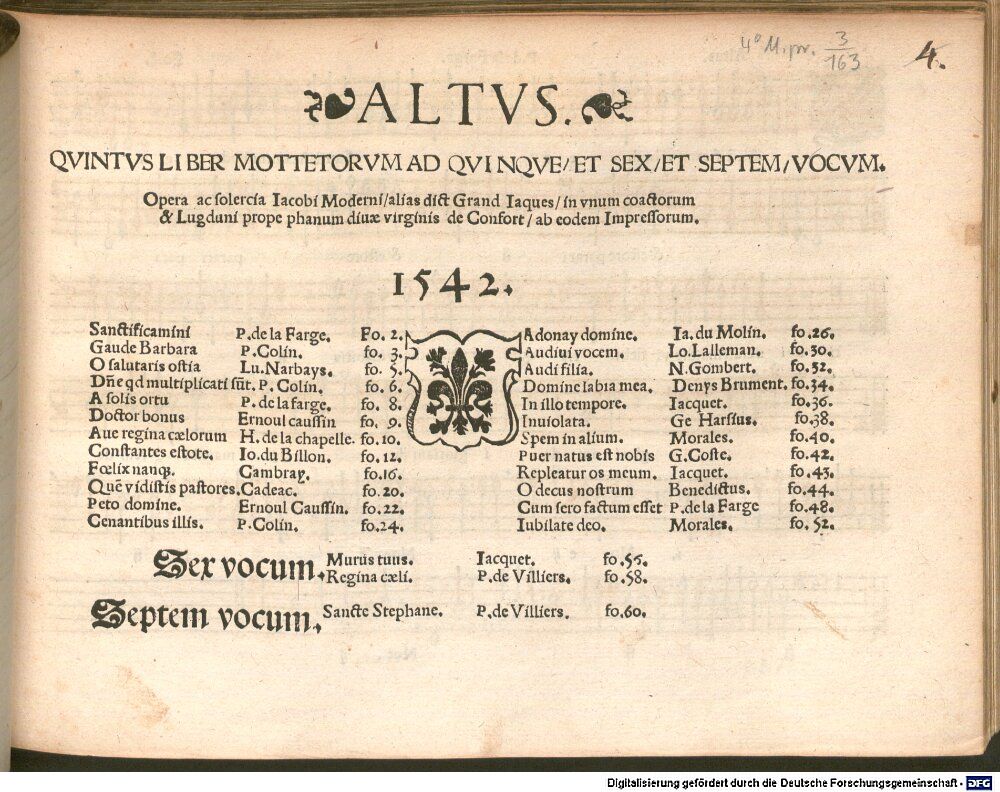 4° M. pr. 3/163
4.
ALTVS.
QVINTVS LIBER MOTTETORVM AD QVINQVE/ET SEX/ET SEPTEM/VOCVM.
Opera ac solercia Iacobi Moderni/alias dict Grand Iaques/in vnum coactorum
& Lugduni prope phanum diuæ virginis de Confort/ab eodem Impressorum.
1542.
Sanctificamini P.de la Farge. Fo. 2.
Gaude Barbara P.Colin. fo. 3.
O salutaris ostia Lu.Narbays. fo. 5.
Dñe qd multiplicati sūt. P. Colin. fo. 6.
A solis ortu P. de la farge. fo. 8.
Doctor bonus Ernoul caussin fo. 9.
Aue regina cælorum H. de la chapelle. fo.10.
Constantes estote. Io.du Billon. fo.12.
Fœlix nanq. Cambray. fo.16.
Quē vidistis pastores. Cadeac. fo.20.
Peto domine. Ernoul Caussin. fo.22.
Cenantibus illis. P.Colin. fo.24.
Adonay domine. Ia.du Molin. fo.26.
Audiui vocem. Lo.Lalleman. fo.30.
Audi filia. N.Gombert. fo.32.
Domine labia mea. Denys Brument. fo.34.
In illo tempore. Iacquet. fo.36.
Inuiolata. Ge Harsius. fo.38.
Spem in alium. Morales. fo.40.
Puer natus est nobis G.Coste. fo.42.
Repleatur os meum. Iacquet. fo.43.
O decus nostrum Benedictus. fo.44.
Cum sero factum esset P.de la Farge fo.48.
Iubilate deo. Morales. fo. 52.
Sex vocum. Murus tuus. Iacquet. fo.56.
Regina cæli. P.de Villiers. fo.58.
Septem vocum. Sancte Stephane. P.de Villiers. fo.60.
Digitalisierung gefördert durch die Deutsche Forschungsgemeinschaft - DFG